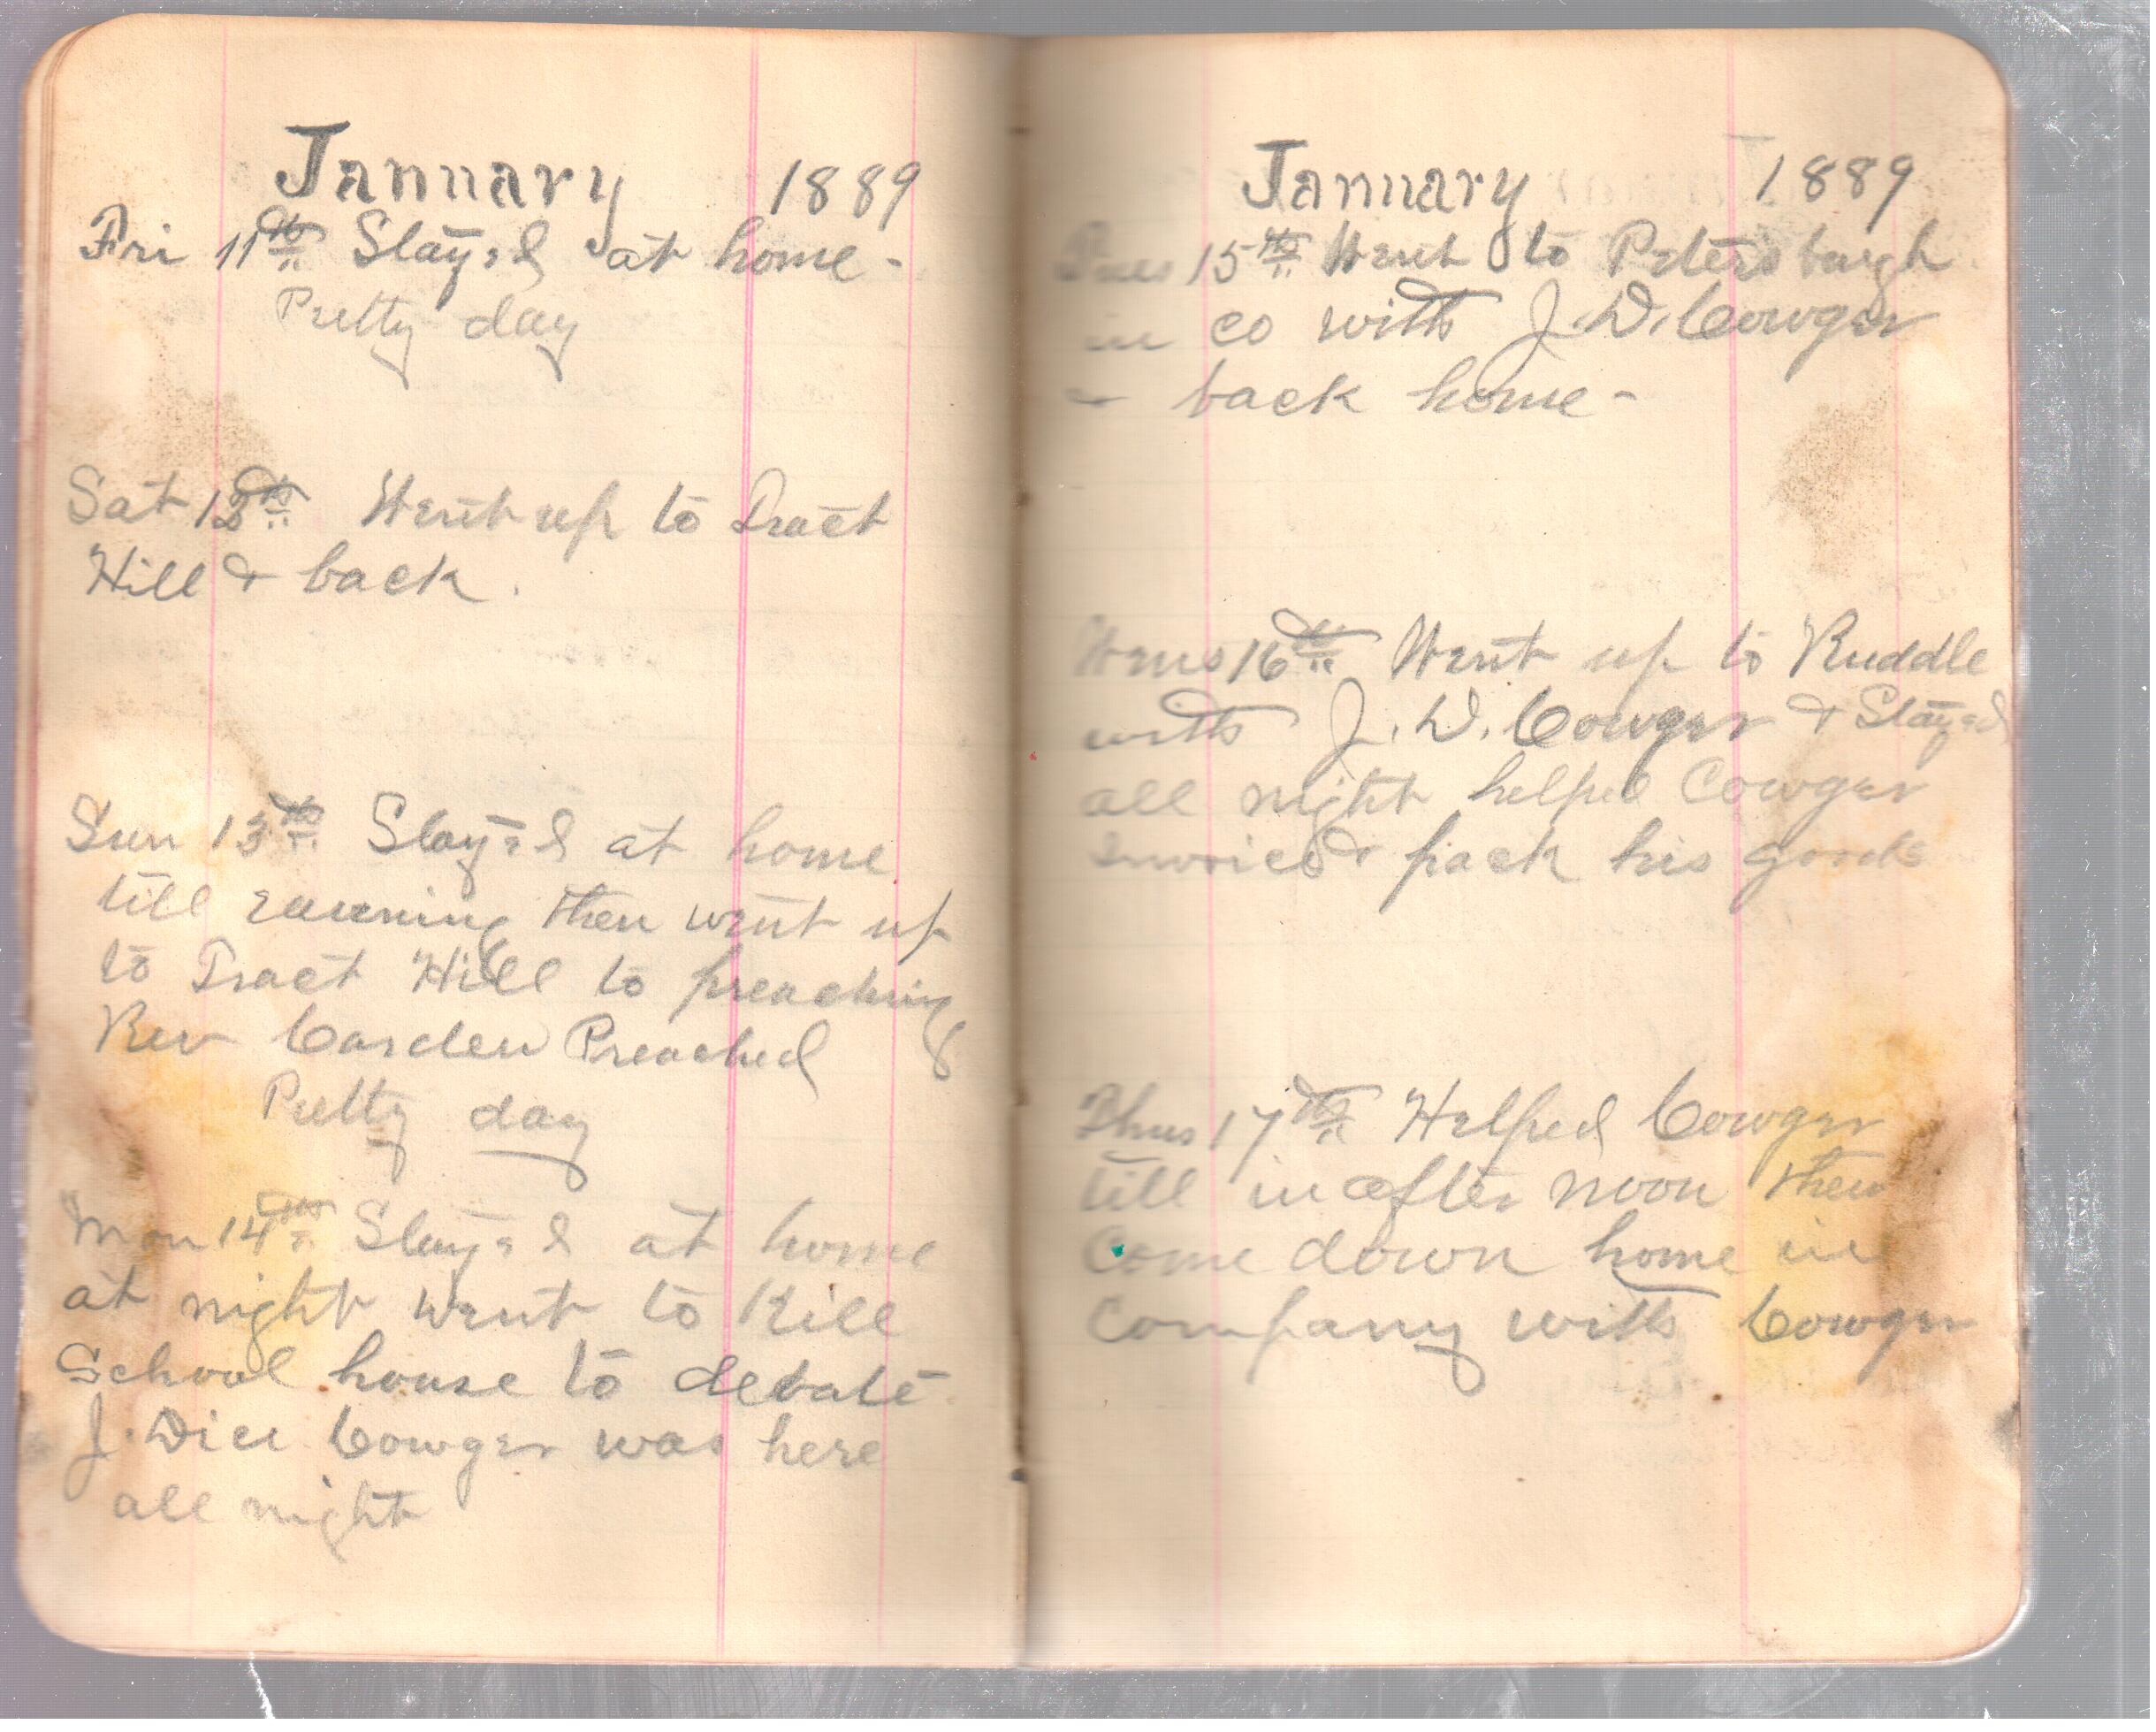 January 1889
Fri 11th Stay=d at home -
Pretty day
Sat 12th Went up to Tract
Hill & back.
Sun 13th Stay=d at home
till eavening then went up
to Tract Hill to preaching
Rev Carden Preached
Pretty day
Mon 14th Stay=d at home
at night went to Kill
School house to debate
J. Dice Cowger was here
all night
January 1889
Tues 15th Went to Petersburgh
in co with J. D. Cowger
& back home -
Wens 16th Went up to Ruddle
with J. D. Cowger & Stay=d
all night helped Cowger
Invoice & pack his goods
Thus 17th Helped Cowger
till in after noon then
Come down home in
Company with Cowger